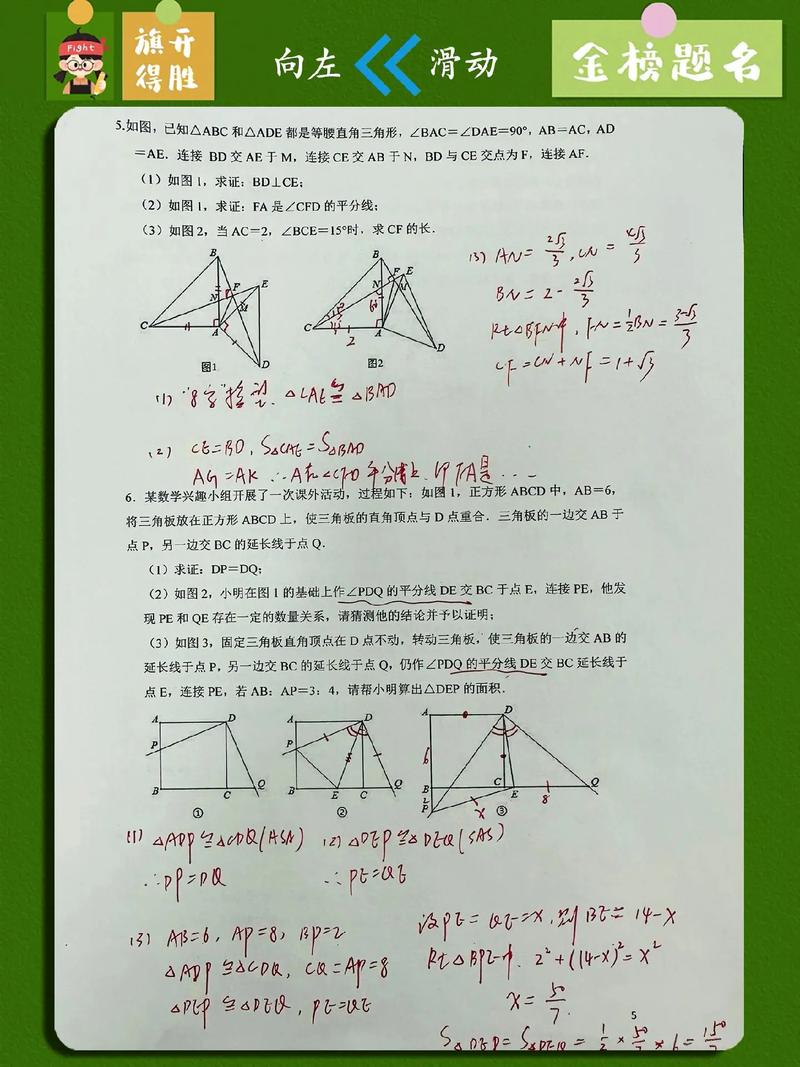 Fight
旗开
得胜
向左
滑动
金榜题名
5.如图，已知△ABC 和△ADE 都是等腰直角三角形，∠BAC＝∠DAE＝90°，AB＝AC，AD
＝AE．连接 BD 交 AE 于 M，连接 CE 交 AB 于 N，BD 与 CE 交点为 F，连接 AF．
（1）如图 1，求证：BD⊥CE；
（2）如图 1，求证：FA 是∠CFD 的平分线；
（3）如图 2，当 AC＝2，∠BCE＝15°时，求 CF 的长．
(3) AN = 2√3/3 , CN = 4√3/3
BN = 2 - 2√3/3
Rt△BFN中, FN = 1/2 BN = (3-√3)/3
CF = CN + NF = 1+√3
B
E
F
N
M
C
A
D
图1
B
E
F
N
M
C
A
D
2
图2
(1) "8字"模型, △CAE ≌ △BAD
(2) CE=BD, S△CAE = S△BAD
AG = AK ∴A在∠CFD平分线上, 即FA是……
6．某数学兴趣小组开展了一次课外活动，过程如下：如图 1，正方形 ABCD 中，AB＝6，
将三角板放在正方形 ABCD 上，使三角板的直角顶点与 D 点重合．三角板的一边交 AB 于
点 P，另一边交 BC 的延长线于点 Q．
（1）求证：DP＝DQ；
（2）如图 2，小明在图 1 的基础上作∠PDQ 的平分线 DE 交 BC 于点 E，连接 PE，他发
现 PE 和 QE 存在一定的数量关系，请猜测他的结论并予以证明；
（3）如图 3，固定三角板直角顶点在 D 点不动，转动三角板，使三角板的一边交 AB 的
延长线于点 P，另一边交 BC 的延长线于点 Q，仍作∠PDQ 的平分线 DE 交 BC 延长线于
点 E，连接 PE，若 AB：AP＝3：4，请帮小明算出△DEP 的面积．
A D
P
B C Q
①
A D
P
B E C Q
②
A D
6
B C E Q
2
P
x
8
③
(1) △ADP ≌ △CDQ (ASA)
∴DP=DQ
(2) △DEP ≌ △DEQ (SAS)
∴PE=QE
(3) AB=6, AP=8, BP=2
△ADP ≌ △CDQ, CQ=AP=8
△DEP ≌ △DEQ, PE=QE
设PE = QE = x, 则 BE = 14-x
Rt△BPE中, 2²+(14-x)² = x²
x = 50/7.
S△DEP = S△DEQ = 1/2 × 50/7 × 6 = 150/7